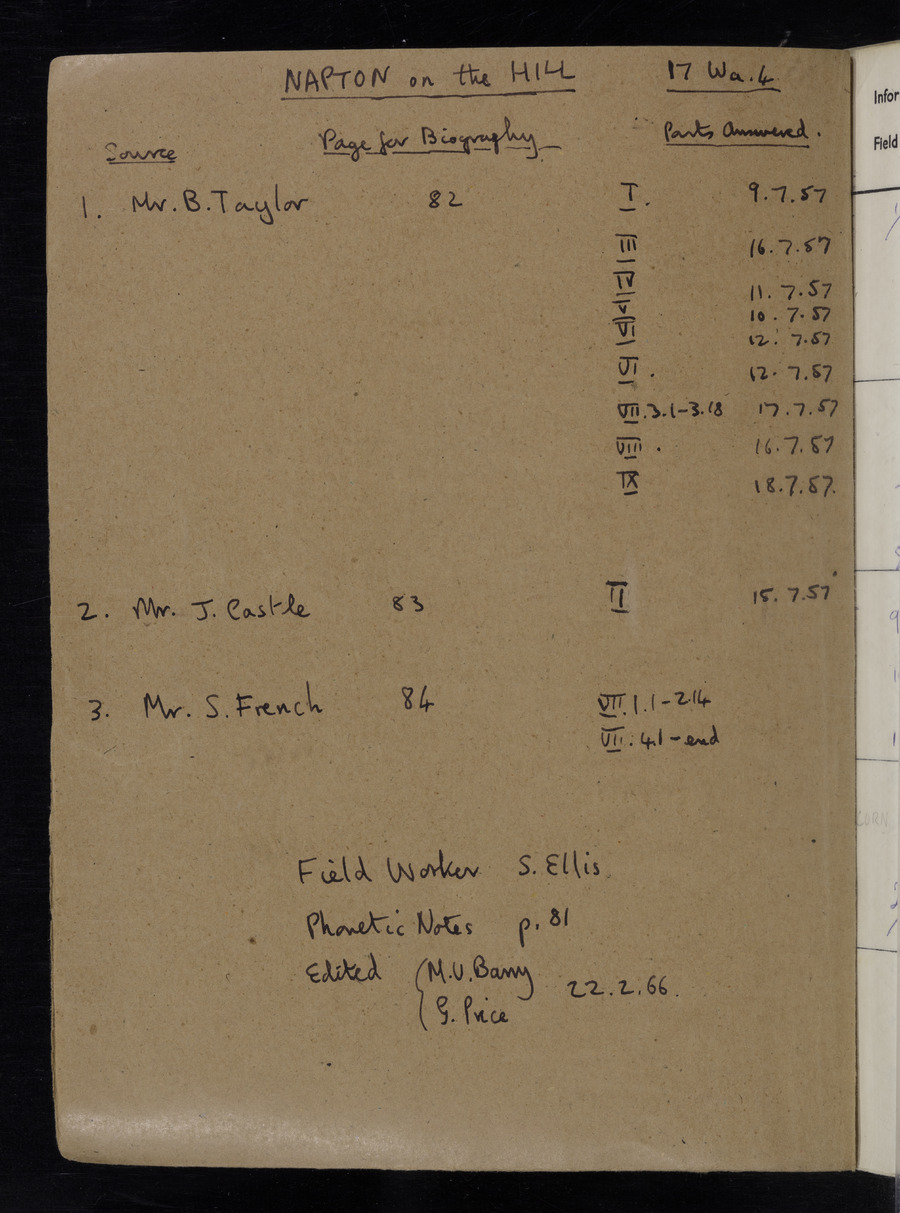 NAPTON on the HILL 17 Wa.4
Infor
Source Page for Biography Parts Answered.
Field
1. Mr. B. Taylor 82 I. 9.7.57
III 16.7.57
IV 11.7.57
V 10.7.57
VI 12.7.57
VI. 12.7.57
VII.3.1-3.18 17.7.57
VIII. 16.7.57
IX 18.7.57.
2. Mr. J. Castle 83 II 15.7.57
3. Mr. S. French 84 VII.1.1-2.14
VII.4.1-end
CORN
Field Worker S. Ellis
Phonetic Notes p. 81
Edited M.V. Barry 22.2.66.
G. Price